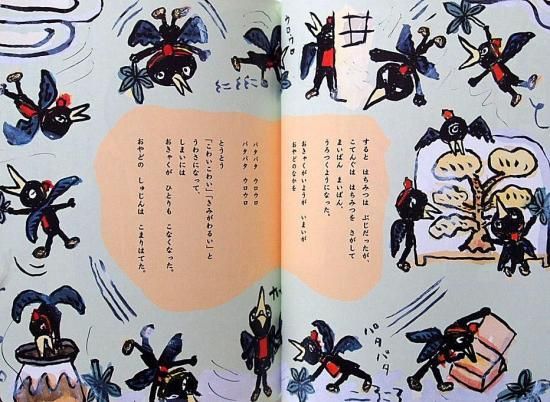 すると はちみつは ぶじだったが、
こてんぐは はちみつを さがして
まいばん まいばん、
うろつくようになった。
おきゃくがいようが いまいが
おやどのなかを
バタバタ ウロウロ
バタバタ ウロウロ
とうとう
「こわいこわい」「きみがわるい」と
うわさになって、
しまいには
おきゃくが ひとりも こなくなった。
おやどの しゅじんは こまりはてた。
ウロウロ
バタバタ